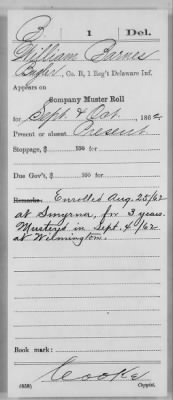 B | 1 | Del.
William Barnes
Bugler, Co. B, 1 Reg't Delaware Inf.
Appears on
Company Muster Roll
for Sept. & Oct., 1862.
Present or absent Present
Stoppage, $ 100 for
Due Gov't, $ 100 for
Remarks: Enrolled Aug. 25/62
at Smyrna, for 3 years.
Mustered in Sept. 4/62
at Wilmington.
Book mark:
Cooke
(858) Copyist.